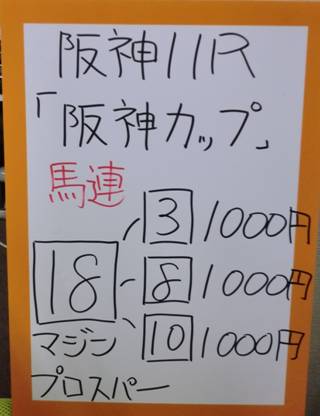 阪神11R
「阪神カップ」
馬連
3 1000円
18 8 1000円
10 1000円
マジン
プロスパー